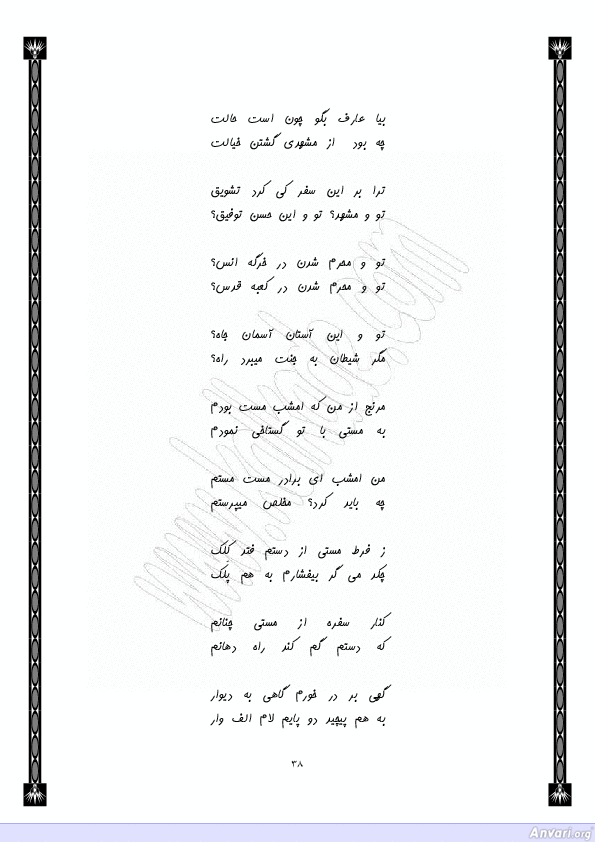 بیا عارف بگو چون است حالت
چه بود از مشهدی گشتن خیالت
ترا بر این سفر کی کرد تشویق
تو و مشهد؟ تو و این حسن توفیق؟
تو و محرم شدن در خرگه انس؟
تو و محرم شدن در کعبه قدس؟
تو و این آستان آسمان جاه؟
مگر شیطان به جنت میبرد راه؟
مرنج از من که امشب مست بودم
به مستی با تو گستاخی نمودم
من امشب ای برادر مست مستم
چه باید کرد؟ مخلص میپرستم
ز فرط مستی از دستم فتد کِلک
چکد می گر بیفشارم به هم پلک
کنار سفره از مستی چنانم
که دستم گم کند راه دهانم
گهی بر در خورم گاهی به دیوار
به هم پیچد دو پایم لام الف وار
۳۸
Anvari.org